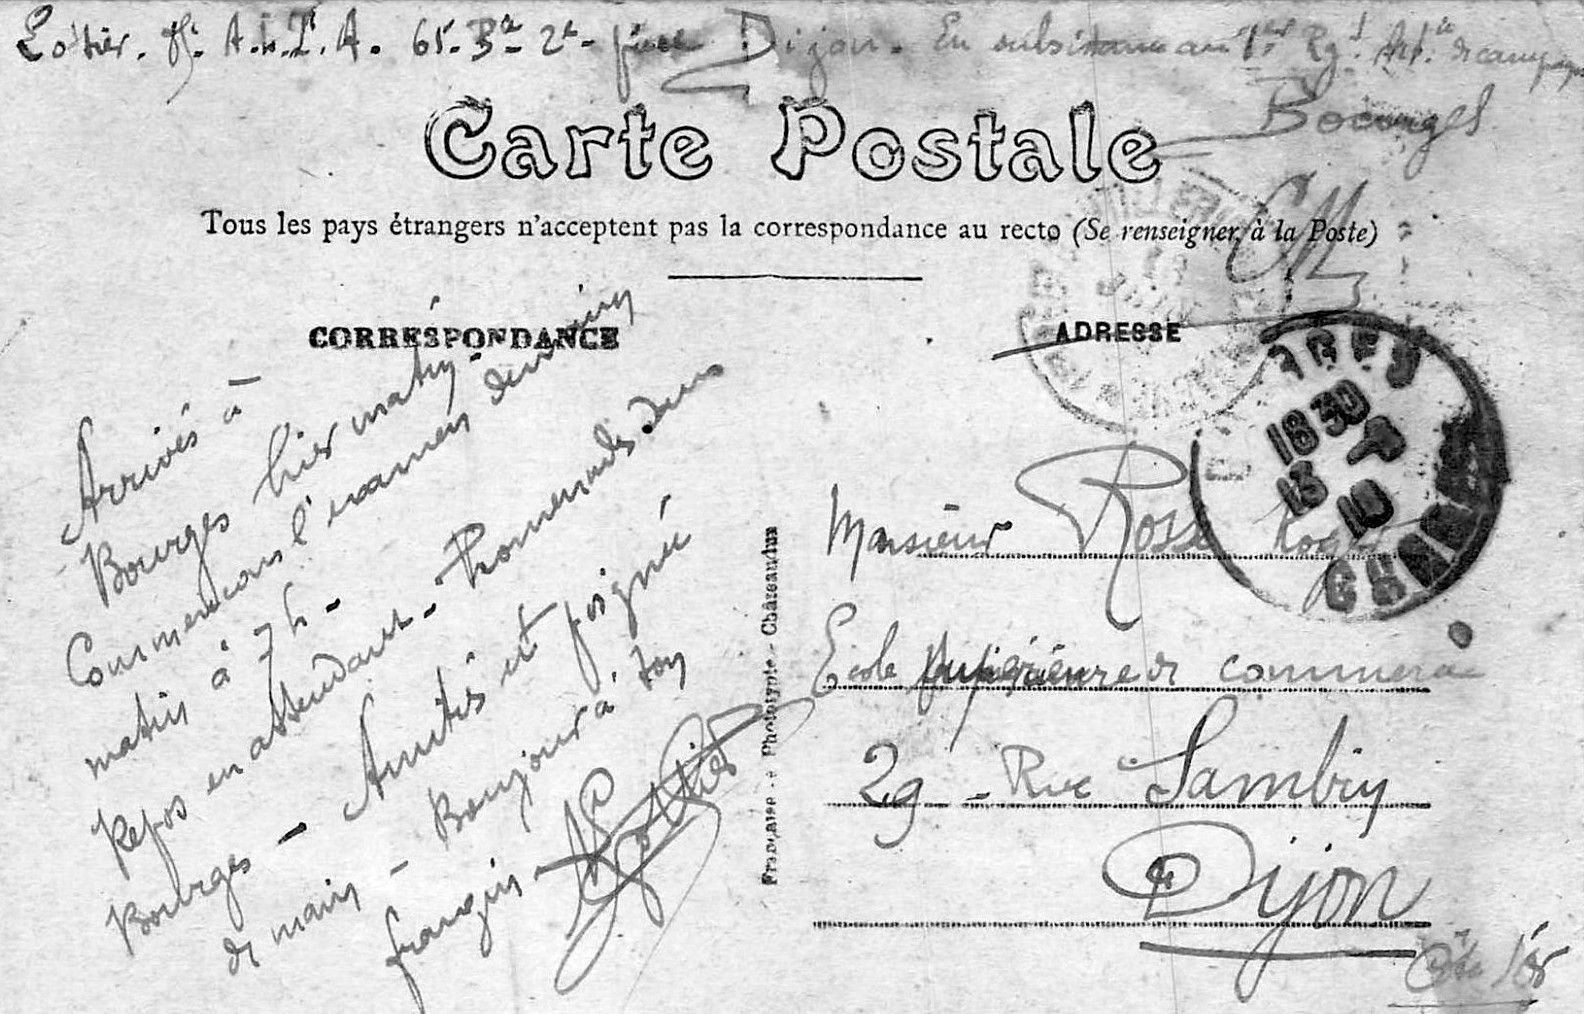 Lotier. A. 65. Bie 2e pièce Dijon. En subsistance au 1er Rgt Art.ie de campagne
Bourges
Carte Postale
Tous les pays étrangers n'acceptent pas la correspondance au recto (Se renseigner à la Poste)
CM
CORRESPONDANCE
ADRESSE
Arrivés à
Bourges hier matin.
Commencons l'examen demain
matin à 7h -
Repos en attendant - Promenades dans
Bourges - Amitiés et poignée
de main - Bonjour à ton
frangin -
Lotier
BOURGES
18 30
13 - 7
10
CHER
Monsieur Rosse Roger
Ecole Supérieure de commerce
29 - Rue Sambin
Dijon
Côte d'Or
Française - Phototypie - Châteaudun